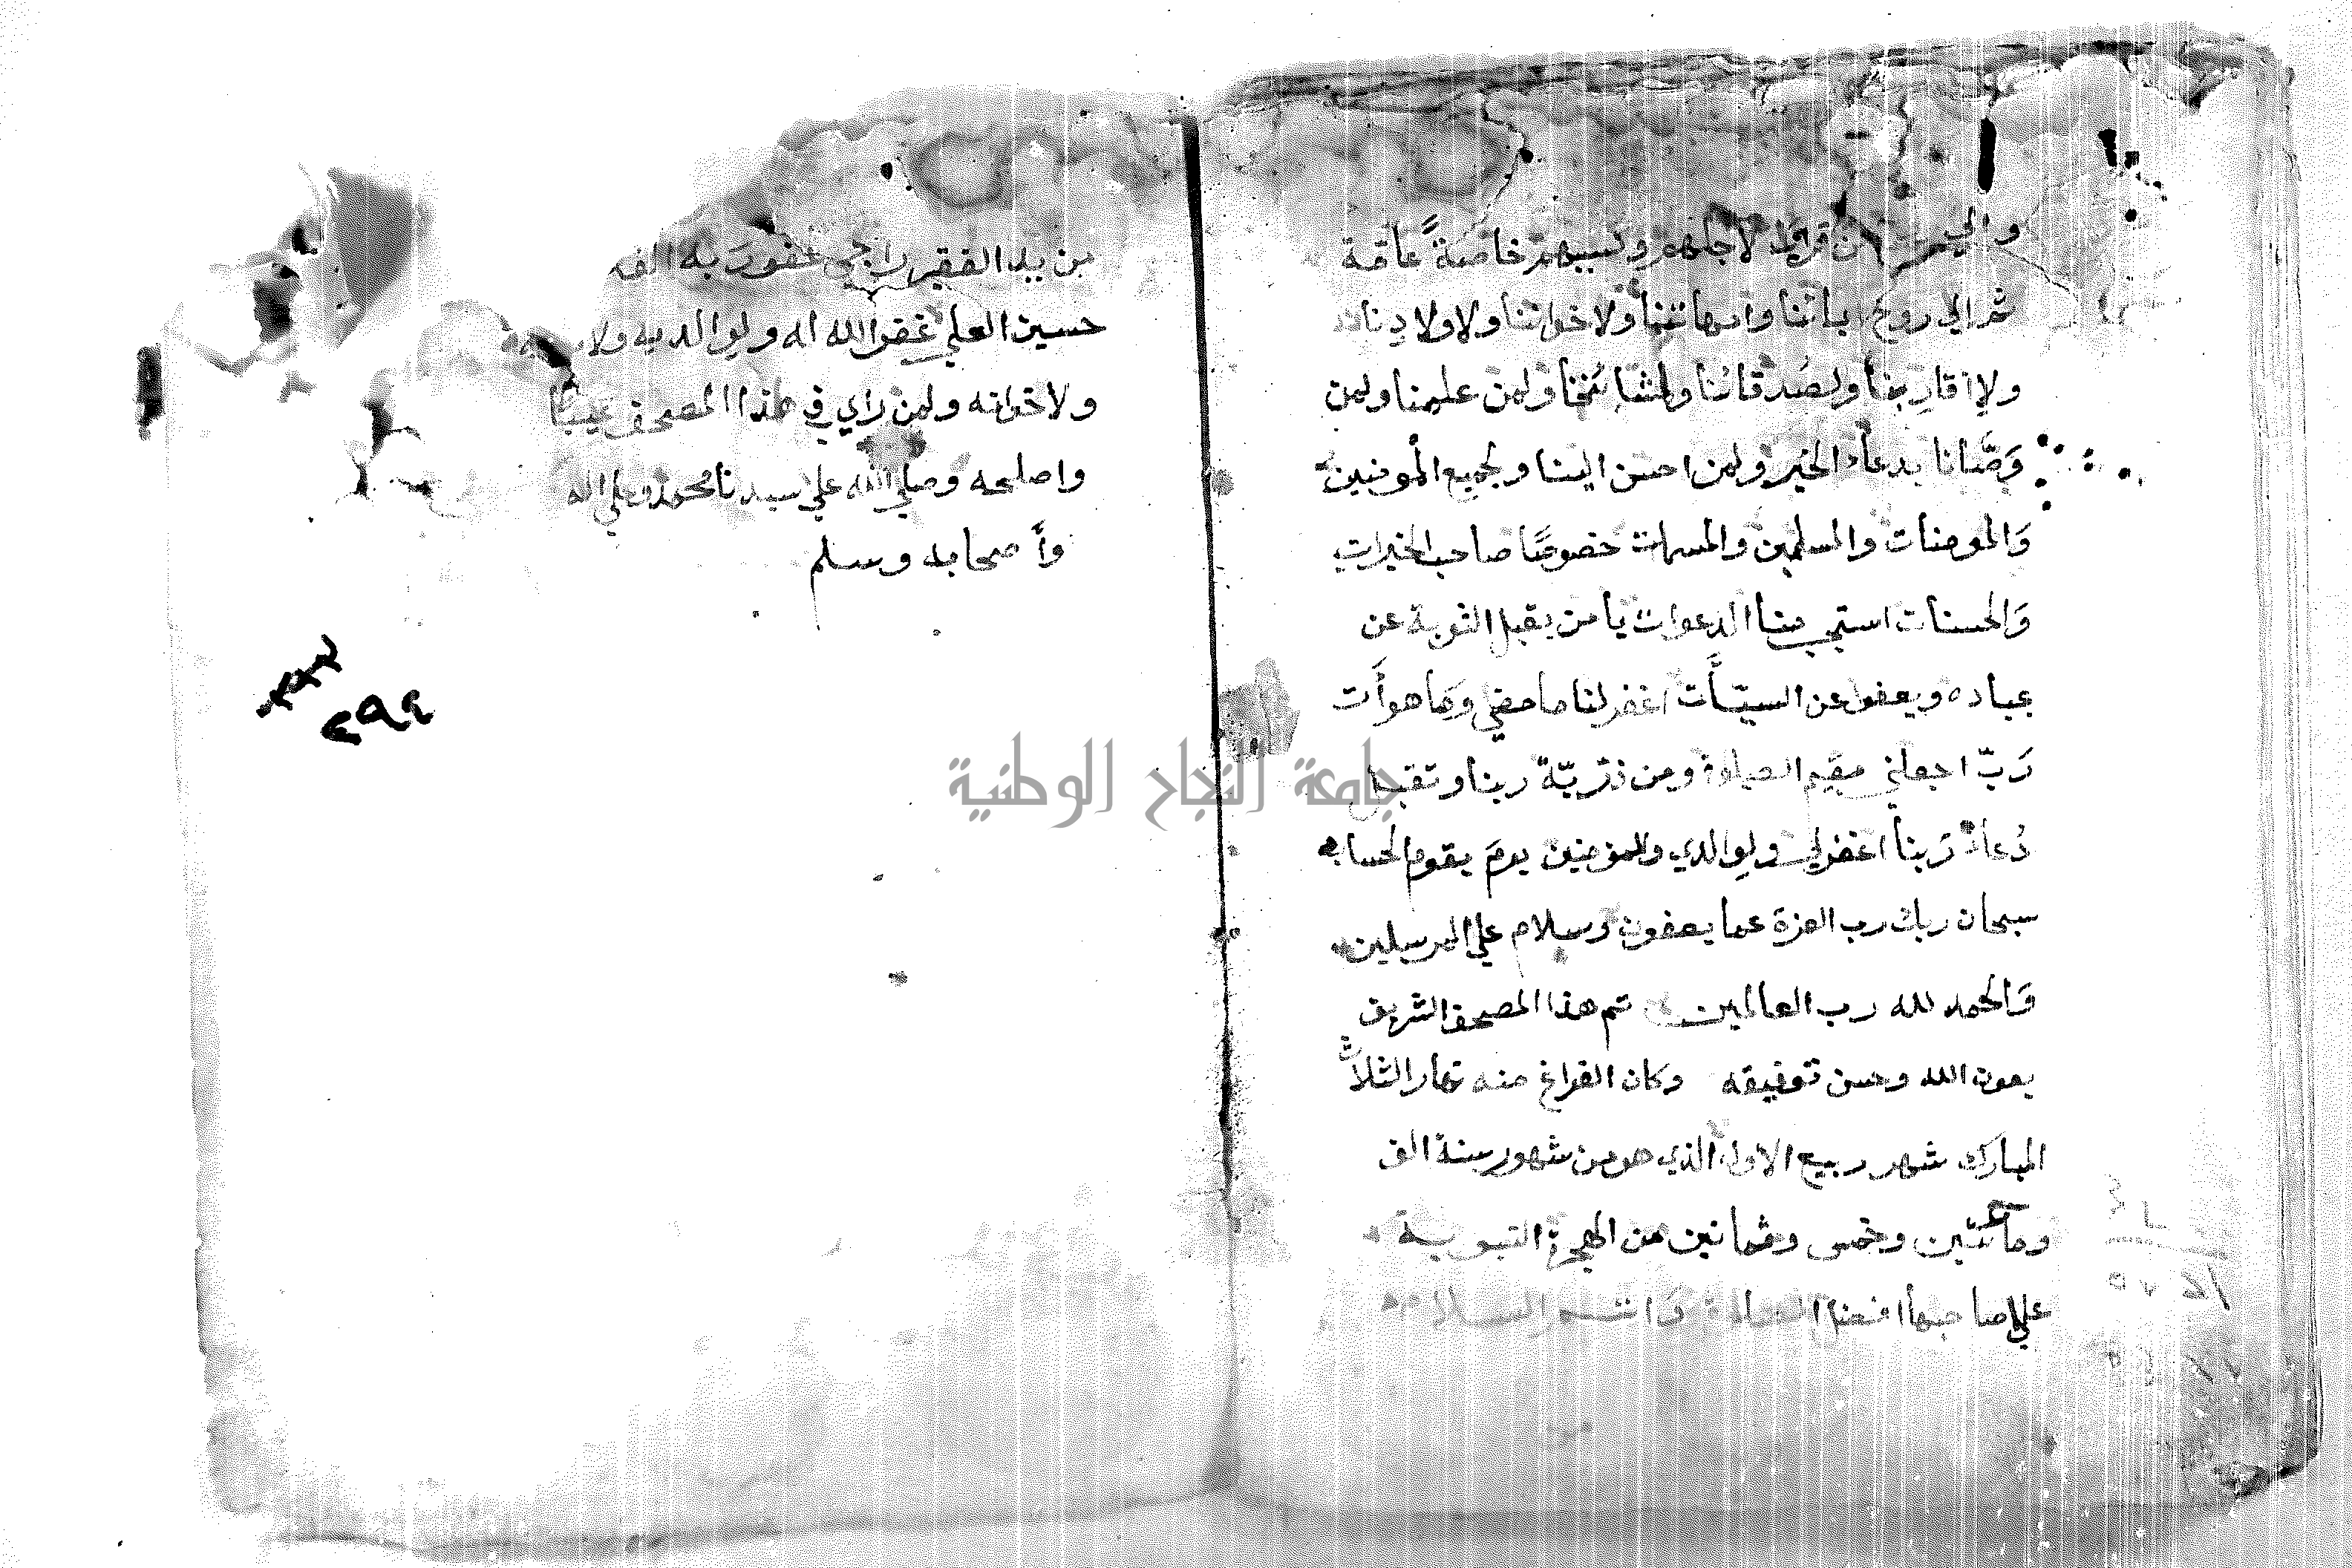 والى من قرانا لاجلهم ولسببهم خاصةً عامة
ثم الي روح ابائنا وامهاتنا ولاخواننا ولاولادنا
ولاقاربنا ولصدقائنا ولمشائخنا ولمن علمنا ولمن
وَصَّانا بدعاء الخير ولمن احسن الينا ولجميع المومنين
وَالمومنات والمسلمين والمسلمات خصوصًا صاحب الخيرات
وَالحسنات استجب منا الدعوات يا من يقبل التوبة عن
عباده ويعفوا عن السيّأَت اغفر لنا ما مضي وَما هو أَت
رَبّ اجعلني مقيم الصلوة ومن ذريّة ربنا وتقبل
دُعاء رَبنا اغفرلي ولوِالدي وللمؤمنين يومَ يقوم الحساب
سبحان ربك رب العزة عما يصفون وسلام علي المرسلين
وَالحمد لله رب العالمين تم هذا المصحف الشريف
بعون الله وحسن توفيقه وكان الفراغ منه نهار الثلاث
المبارك شهر ربيع الاول الذي هو من شهور سنة الف
ومائتين وخمس وثمانين من الهجرة النبوية
علي صاحبها افضل الصلاة وَاتـم السلام
من يد الفقير راجي عفو رَبه
حسين العلي غفر الله له ولوالديه
ولاخوانه ولمن راي في هذا المصحف عيبًا
واصلحه وصلي الله علي سيدنا محمد وعلي اله
وأصحابه وسلم
٢٩٤
جامعة النجاح الوطنية